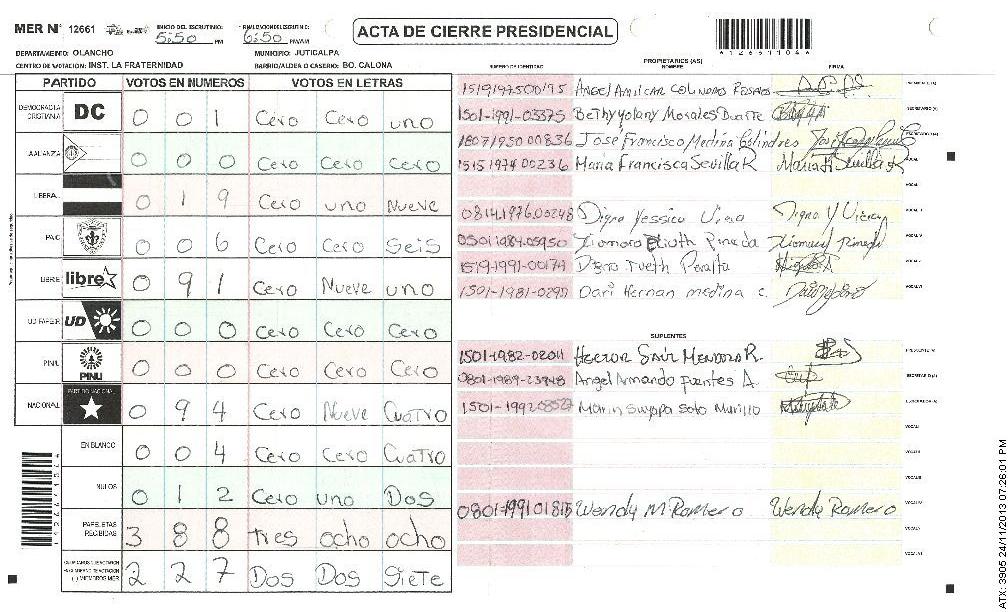 MER N° 12661 INICIO DEL ESCRUTINIO: 5:50 PM FINALIZACION ESCRUTINIO: 6:50 PM/AM ACTA DE CIERRE PRESIDENCIAL
DEPARTAMENTO: OLANCHO MUNICIPIO: JUTICALPA
CENTRO DE VOTACION: INST. LA FRATERNIDAD BARRIO/ALDEA O CASERIO: BO. CALONA
PARTIDO VOTOS EN NUMEROS VOTOS EN LETRAS
DEMOCRACIA CRISTIANA DC 0 0 1 Cero Cero uno
ALIANZA 0 0 0 Cero Cero Cero
LIBERAL 0 1 9 Cero uno Nueve
PAC 0 0 6 Cero Cero Seis
LIBRE libre 0 9 1 Cero Nueve uno
UD FAPER UD 0 0 0 Cero Cero Cero
PINU PINU 0 0 0 Cero Cero Cero
NACIONAL PARTIDO NACIONAL 0 9 4 Cero Nueve Cuatro
EN BLANCO 0 0 4 Cero Cero Cuatro
NULOS 0 1 2 Cero uno Dos
PAPELETAS RECIBIDAS 3 8 8 tres ocho ocho
(-) MIEMBROS MER 2 2 7 Dos Dos Siete
PROPIETARIOS (AS)
NUMERO DE IDENTIDAD NOMBRE FIRMA
1519197500195 Angel Amilcar Colindres Rosales
1501-1991-03375 Bethy yolany Morales Duarte
1807195000836 José Francisco Medina Colindres
1515197400236 Maria Francisca Sevilla R Maria F Sevilla R
0814197600248 Digna Yessica
0501-1984-05950 Xiomara Pineda Xiomara Pineda
1519-1991-00174 Peralta
1501-1981-0295 Dari Hernan medina c.
SUPLENTES
1501-1982-02011 Hector Saul Mendoza R.
0801-1989-23948 Angel Armando fuentes A.
1501-1992 Marin Suyapa Soto Murillo
0801-199101815 Wendy M Romero Wendy Romero
ATX: 3905 24/11/2013 07:26:01 PM